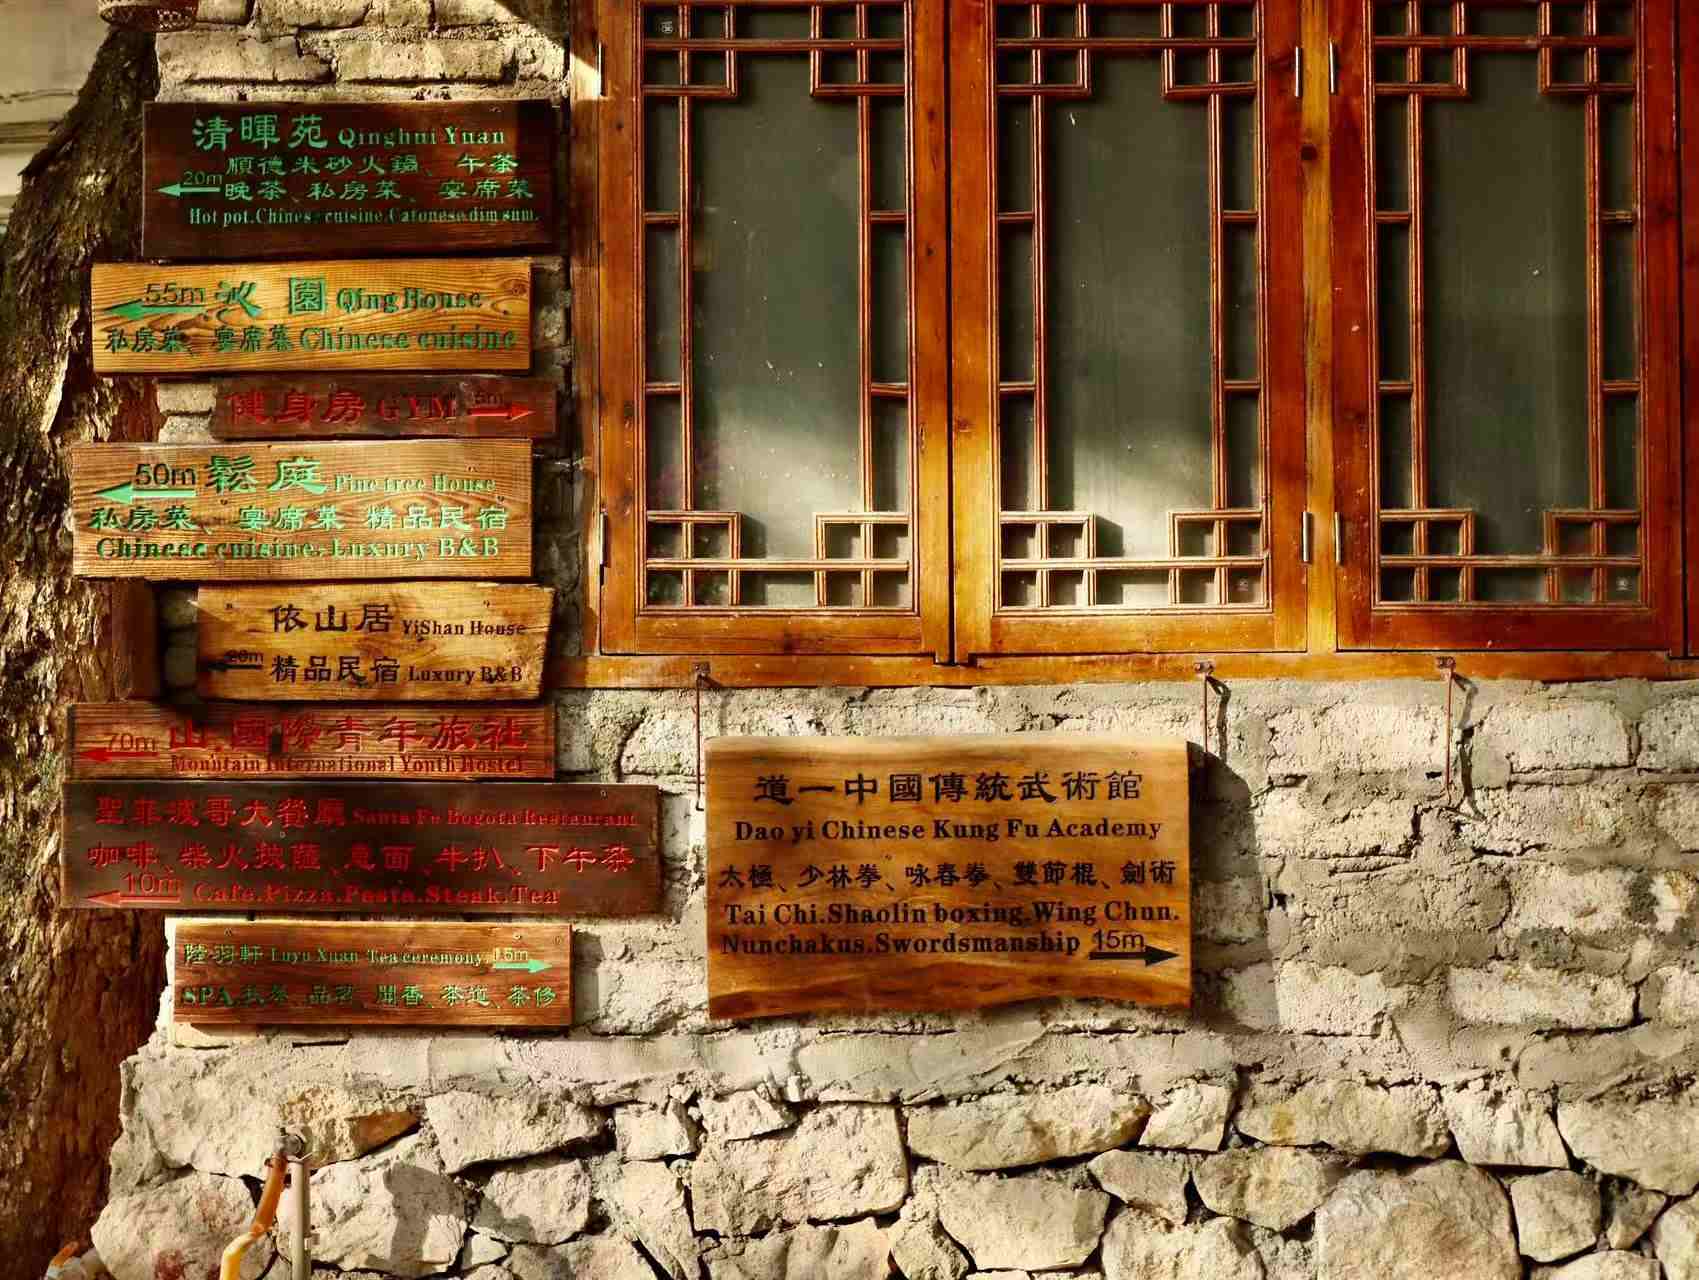 清暉苑 Qinghui Yuan
順德米砂火鍋、午茶
20m 晚茶、私房菜、宴席菜
Hot pot.Chinese cuisine.Catonese dim sum.
55m 沁園 Qing House
私房菜、宴席菜 Chinese cuisine
健身房 GYM 5m
50m 鬆庭 Pine tree House
私房菜、宴席菜 精品民宿
Chinese cuisine. Luxury B&B
依山居 YiShan House
20m 精品民宿 Luxury B&B
70m 山 國際青年旅社
Mountain International Youth Hostel
聖菲波哥大餐廳 Santa Fe Bogota Restaurant
咖啡、柴火披薩、意面、牛扒、下午茶
10m Cafe.Pizza.Pasta.Steak.Tea
陸羽軒 Luyu Xuan Tea ceremony 15m
SPA 品茗、聞香、茶道、茶修
道一中國傳統武術館
Dao yi Chinese Kung Fu Academy
太極、少林拳、咏春拳、雙節棍、劍術
Tai Chi.Shaolin boxing.Wing Chun.
Nunchakus.Swordsmanship 15m